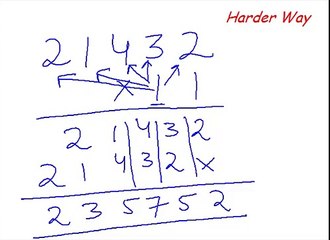 Harder Way
2 1 4 3 2
x 1 1
2 1 4 3 2
2 1 4 3 2 x
2 3 5 7 5 2